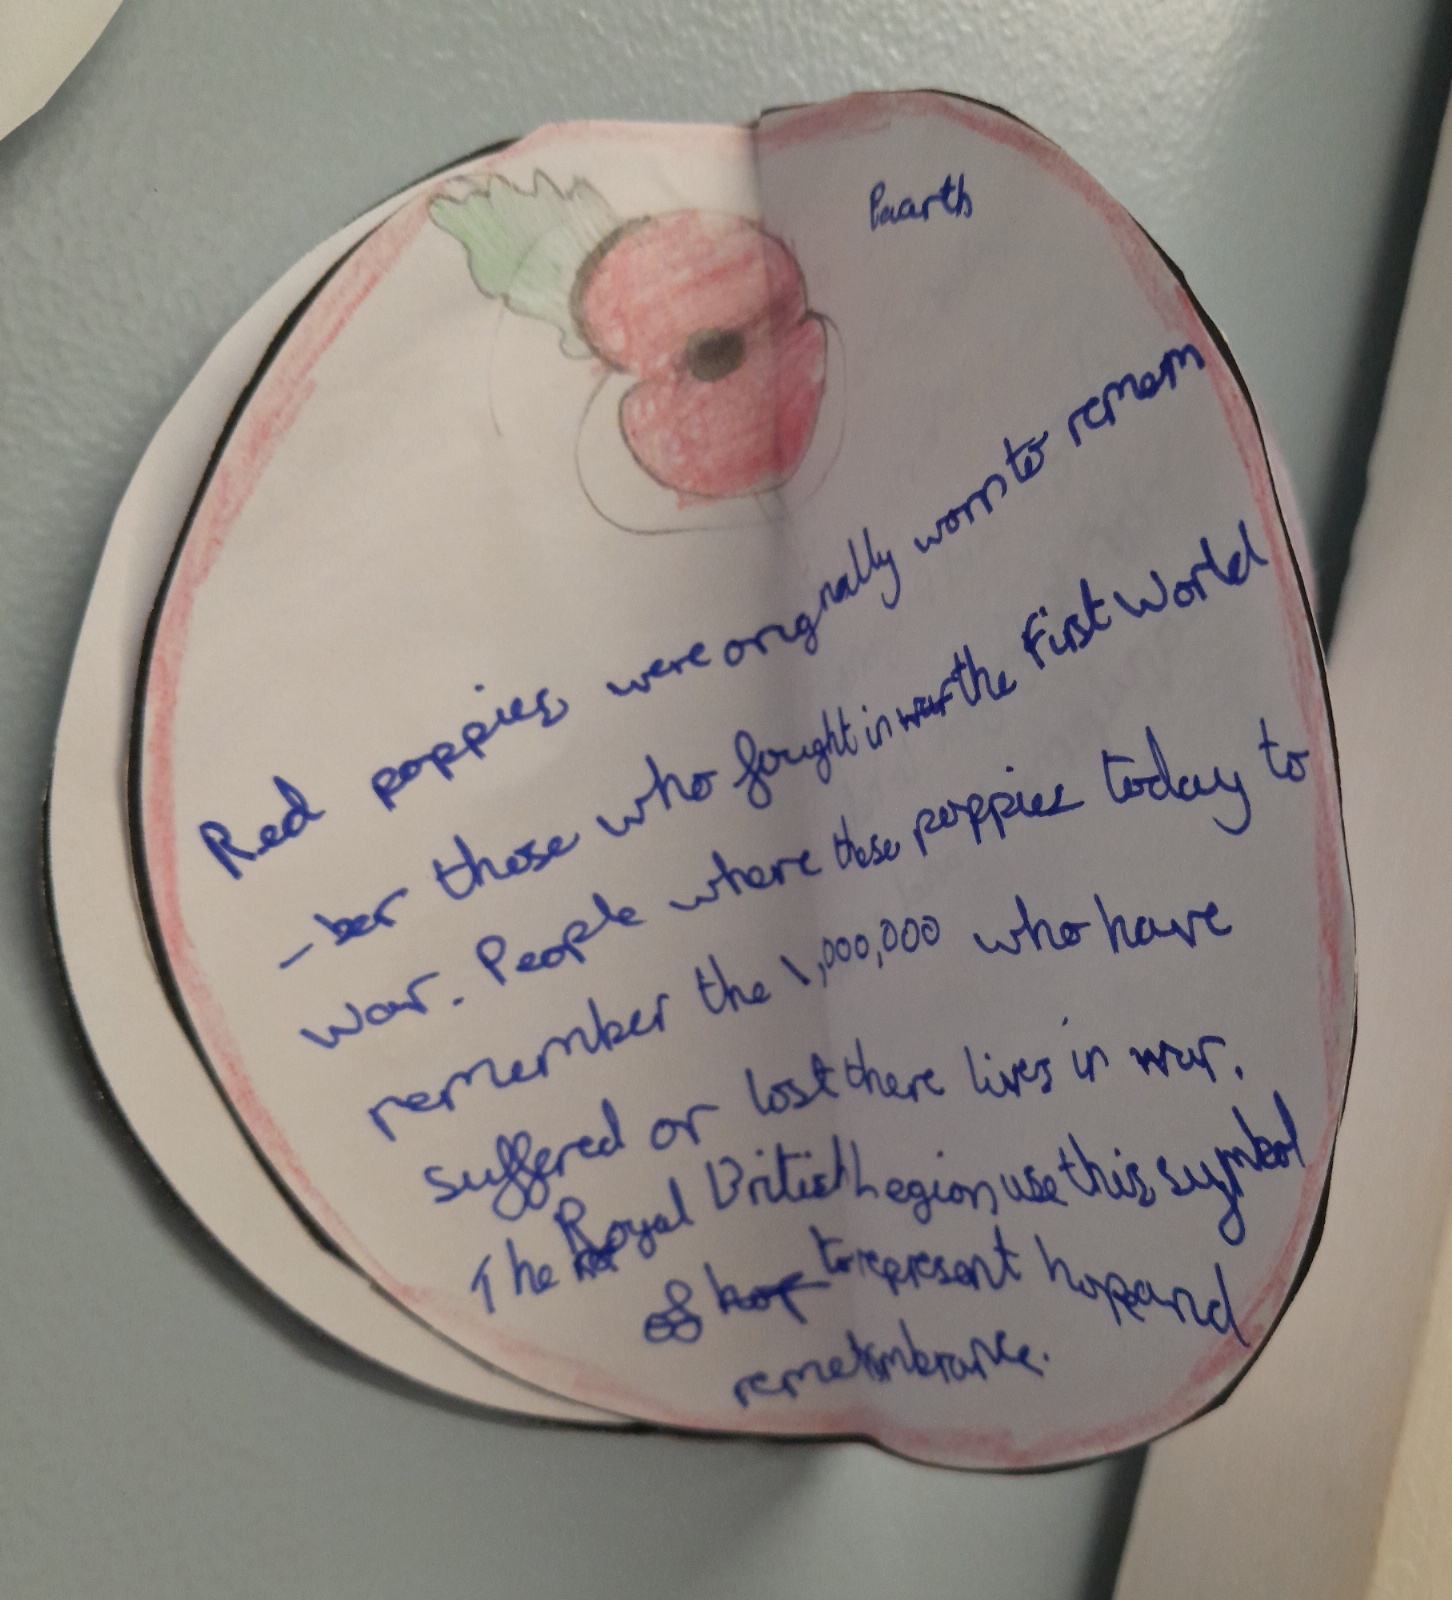 Paarth
Red poppies were originally worn to remem
-ber those who fought in war the First World
war. People where these poppies today to
remember the 1,000,000 who have
suffered or lost there lives in war.
The Royal British Legion use this symbol
of hop to represent hope and
remembrance.